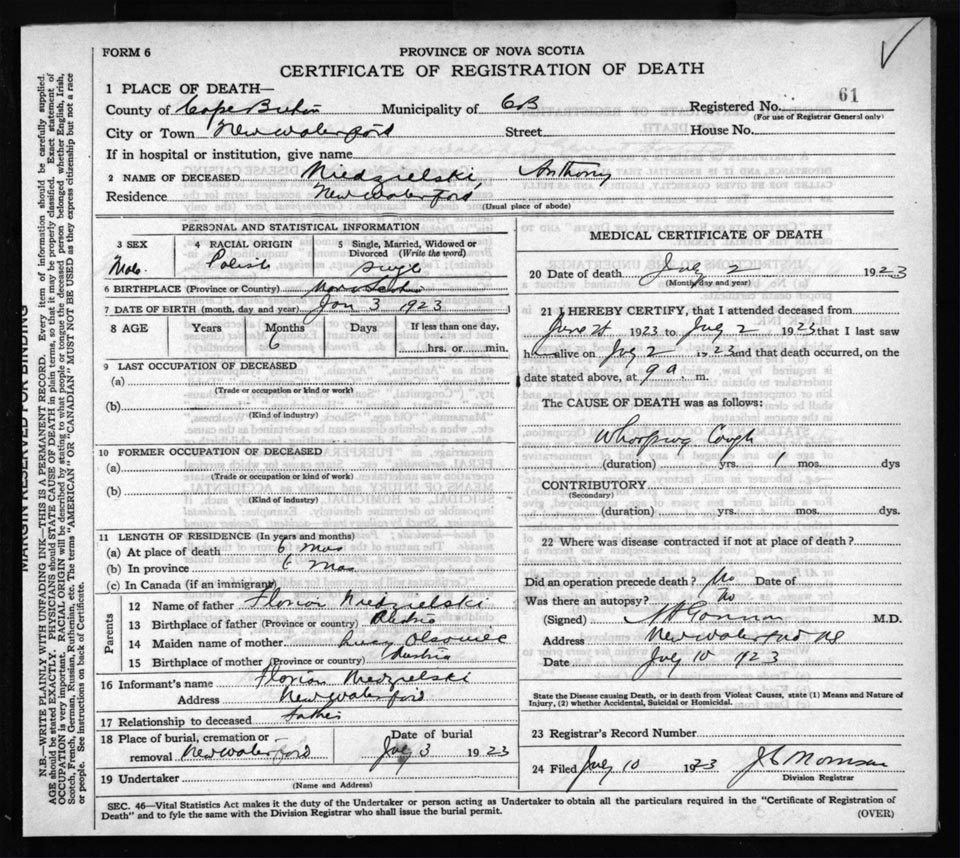 FORM 6
PROVINCE OF NOVA SCOTIA
CERTIFICATE OF REGISTRATION OF DEATH
1 PLACE OF DEATH—
County of Cape Breton Municipality of CB Registered No. 61
(For use of Registrar General only)
City or Town New Waterford Street House No.
If in hospital or institution, give name
2 NAME OF DECEASED Niedzielski, Anthony
Residence New Waterford
(Usual place of abode)
PERSONAL AND STATISTICAL INFORMATION
3 SEX 4 RACIAL ORIGIN 5 Single, Married, Widowed or Divorced (Write the word)
Male Polish Single
6 BIRTHPLACE (Province or Country) Nova Scotia
7 DATE OF BIRTH (month, day and year) Jan 3 1923
8 AGE Years Months Days If less than one day,
6 hrs. or min.
9 LAST OCCUPATION OF DECEASED
(a)
(Trade or occupation or kind or work)
(b)
(Kind of industry)
10 FORMER OCCUPATION OF DECEASED
(a)
(Trade or occupation or kind of work)
(b)
(Kind of industry)
11 LENGTH OF RESIDENCE (In years and months)
(a) At place of death 6 mos
(b) In province 6 mos
(c) In Canada (if an immigrant)
Parents
12 Name of father Florion Niedzielski
13 Birthplace of father (Province or country) Austria
14 Maiden name of mother Lucy
15 Birthplace of mother (Province or country) Austria
16 Informant's name Florion Niedzielski
Address New Waterford
17 Relationship to deceased father
18 Place of burial, cremation or removal New Waterford Date of burial July 3 1923
19 Undertaker
(Name and Address)
MEDICAL CERTIFICATE OF DEATH
20 Date of death July 2 1923
(Month, day and year)
21 I HEREBY CERTIFY, that I attended deceased from
June 1923 to July 2 1923 that I last saw
h alive on July 2 1923 and that death occurred, on the
date stated above, at 9 a. m.
The CAUSE OF DEATH was as follows:
Whooping Cough
(duration) yrs. 1 mos. dys
CONTRIBUTORY
(Secondary)
(duration) yrs. mos. dys.
22 Where was disease contracted if not at place of death?
Did an operation precede death? No Date of
Was there an autopsy? No
(Signed) M.D.
Address New Waterford NS
Date July 10 1923
State the Disease causing Death, or in death from Violent Causes, state (1) Means and Nature of
Injury, (2) whether Accidental, Suicidal or Homicidal.
23 Registrar's Record Number
24 Filed July 10 1923 J C Morrison
Division Registrar
SEC. 46—Vital Statistics Act makes it the duty of the Undertaker or person acting as Undertaker to obtain all the particulars required in the "Certificate of Registration of
Death" and to fyle the same with the Division Registrar who shall issue the burial permit.
(OVER)
MARGIN RESERVED FOR BINDING
N.B.—WRITE PLAINLY WITH UNFADING INK—THIS IS A PERMANENT RECORD. Every item of information should be carefully supplied.
AGE should be stated EXACTLY. PHYSICIANS should STATE CAUSE OF DEATH in plain terms, so that it may be properly classified. Exact statement of
OCCUPATION is very important. RACIAL ORIGIN will be described by stating to what people or tongue the deceased person belonged whether English, Irish,
Scotch, French, German, Russian, Ruthenian, etc. The terms "AMERICAN" OR "CANADIAN" MUST NOT BE USED as they express citizenship but not a race
or people. See instructions on back of Certificate.